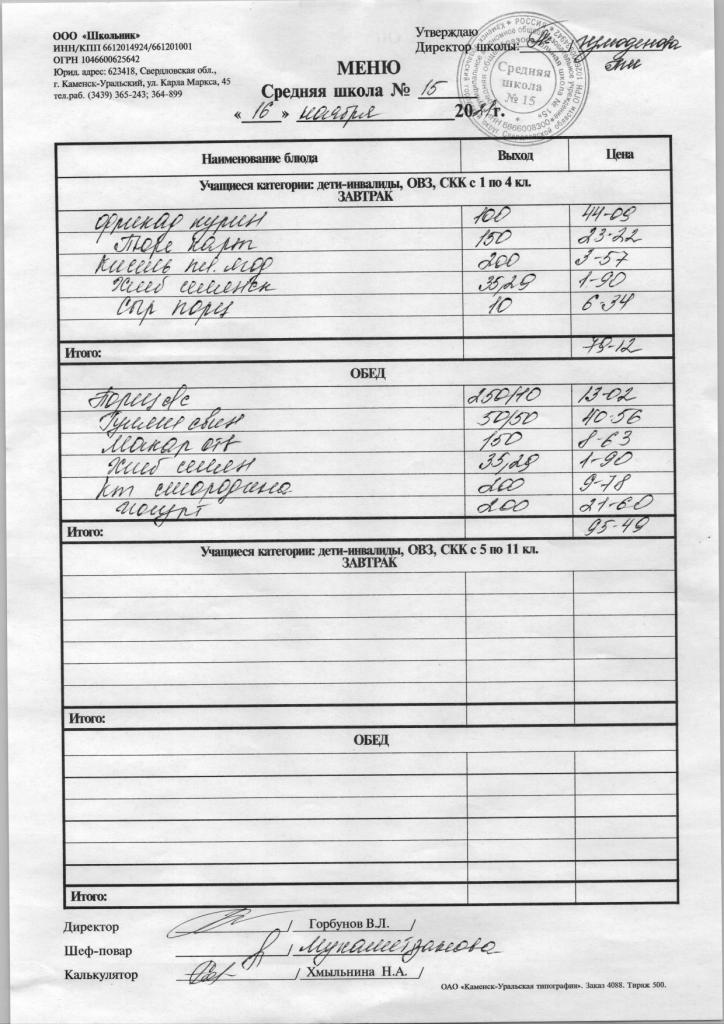 ООО «Школьник»
ИНН/КПП 6612014924/661201001
ОГРН 1046600625642
Юрид. адрес: 623418, Свердловская обл.,
г. Каменск-Уральский, ул. Карла Маркса, 45
тел.раб. (3439) 365-243; 364-899
Утверждаю
Директор школы:
Средняя
школа
№ 15
МЕНЮ
Средняя школа № 15
« 16 » ноября 20 г.
Наименование блюда Выход Цена
Учащиеся категории: дети-инвалиды, ОВЗ, СКК с 1 по 4 кл.
ЗАВТРАК
Фрикад курин 100 44-09
Пюре карт 150 23-22
Кисель пл. ягод 200 3-57
Хлеб 35,29 1-90
Сыр порц 10 6-34
Итого: 79-12
ОБЕД
250/10 13-02
Гуляш свин 50/50 40-56
Макар отв 150 8-63
Хлеб 35,29 1-90
кт смородина 200 9-78
йогурт 200 21-60
Итого: 95-49
Учащиеся категории: дети-инвалиды, ОВЗ, СКК с 5 по 11 кл.
ЗАВТРАК
Итого:
ОБЕД
Итого:
Директор / Горбунов В.Л. /
Шеф-повар / Мухаметзянова
Калькулятор / Хмыльнина Н.А. /
ОАО «Каменск-Уральская типография». Заказ 4088. Тираж 500.